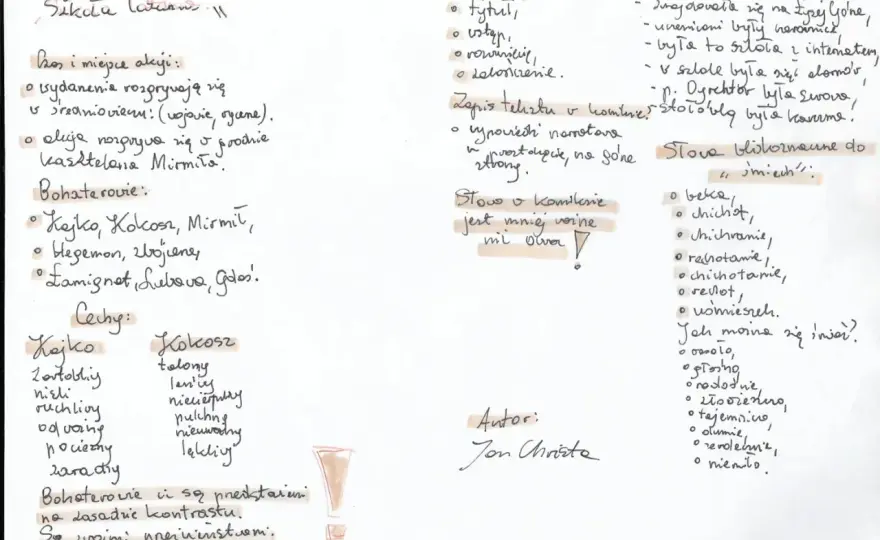 Szkoła latania."
Czas i miejsce akcji:
o wydarzenia rozgrywają się
w średniowieczu: (wojowie, rycerze).
o akcja rozgrywa się w grodzie
kasztelana Mirmiła.
Bohaterowie:
o Kajko, Kokosz, Mirmił,
o Hegemon, zbójcerze,
o Łamignat, Lubawa, Gdaś.
Cechy:
Kajko
żartobliwy
niski
ruchliwy
odważny
pocieszny
zaradny
Kokosz
leniwy
niecierpliwy
pulchny
nieuważny
lękliwy
Bohaterowie ci są przedstawieni
na zasadzie kontrastu.
Są swoimi przeciwieństwami.
o tytuł,
o wstęp,
o rozwinięcie,
o zakończenie.
Zapis tekstu w komiksie:
o wypowiedzi narratora
w prostokącie, na górze
strony.
Słowo w komiksie
jest mniej ważne
niż obraz!
Autor:
Jan Christa
- znajdowała się na Łysej Górze,
- uczennicami były
- była to szkoła z internatem,
- w szkole była sieć alarmów,
- p. Dyrektor była surowa,
- stołówką była karczma.
Słowa bliskoznaczne do
"śmiech":
o beka,
o chichot,
o chichranie,
o rechotanie,
o chichotanie,
o rechot,
o uśmieszek.
Jak można się śmiać?
o wesoło,
o głośno,
o radośnie,
o złowieszczo,
o tajemniczo,
o dumnie,
o serdecznie,
o niemiło.